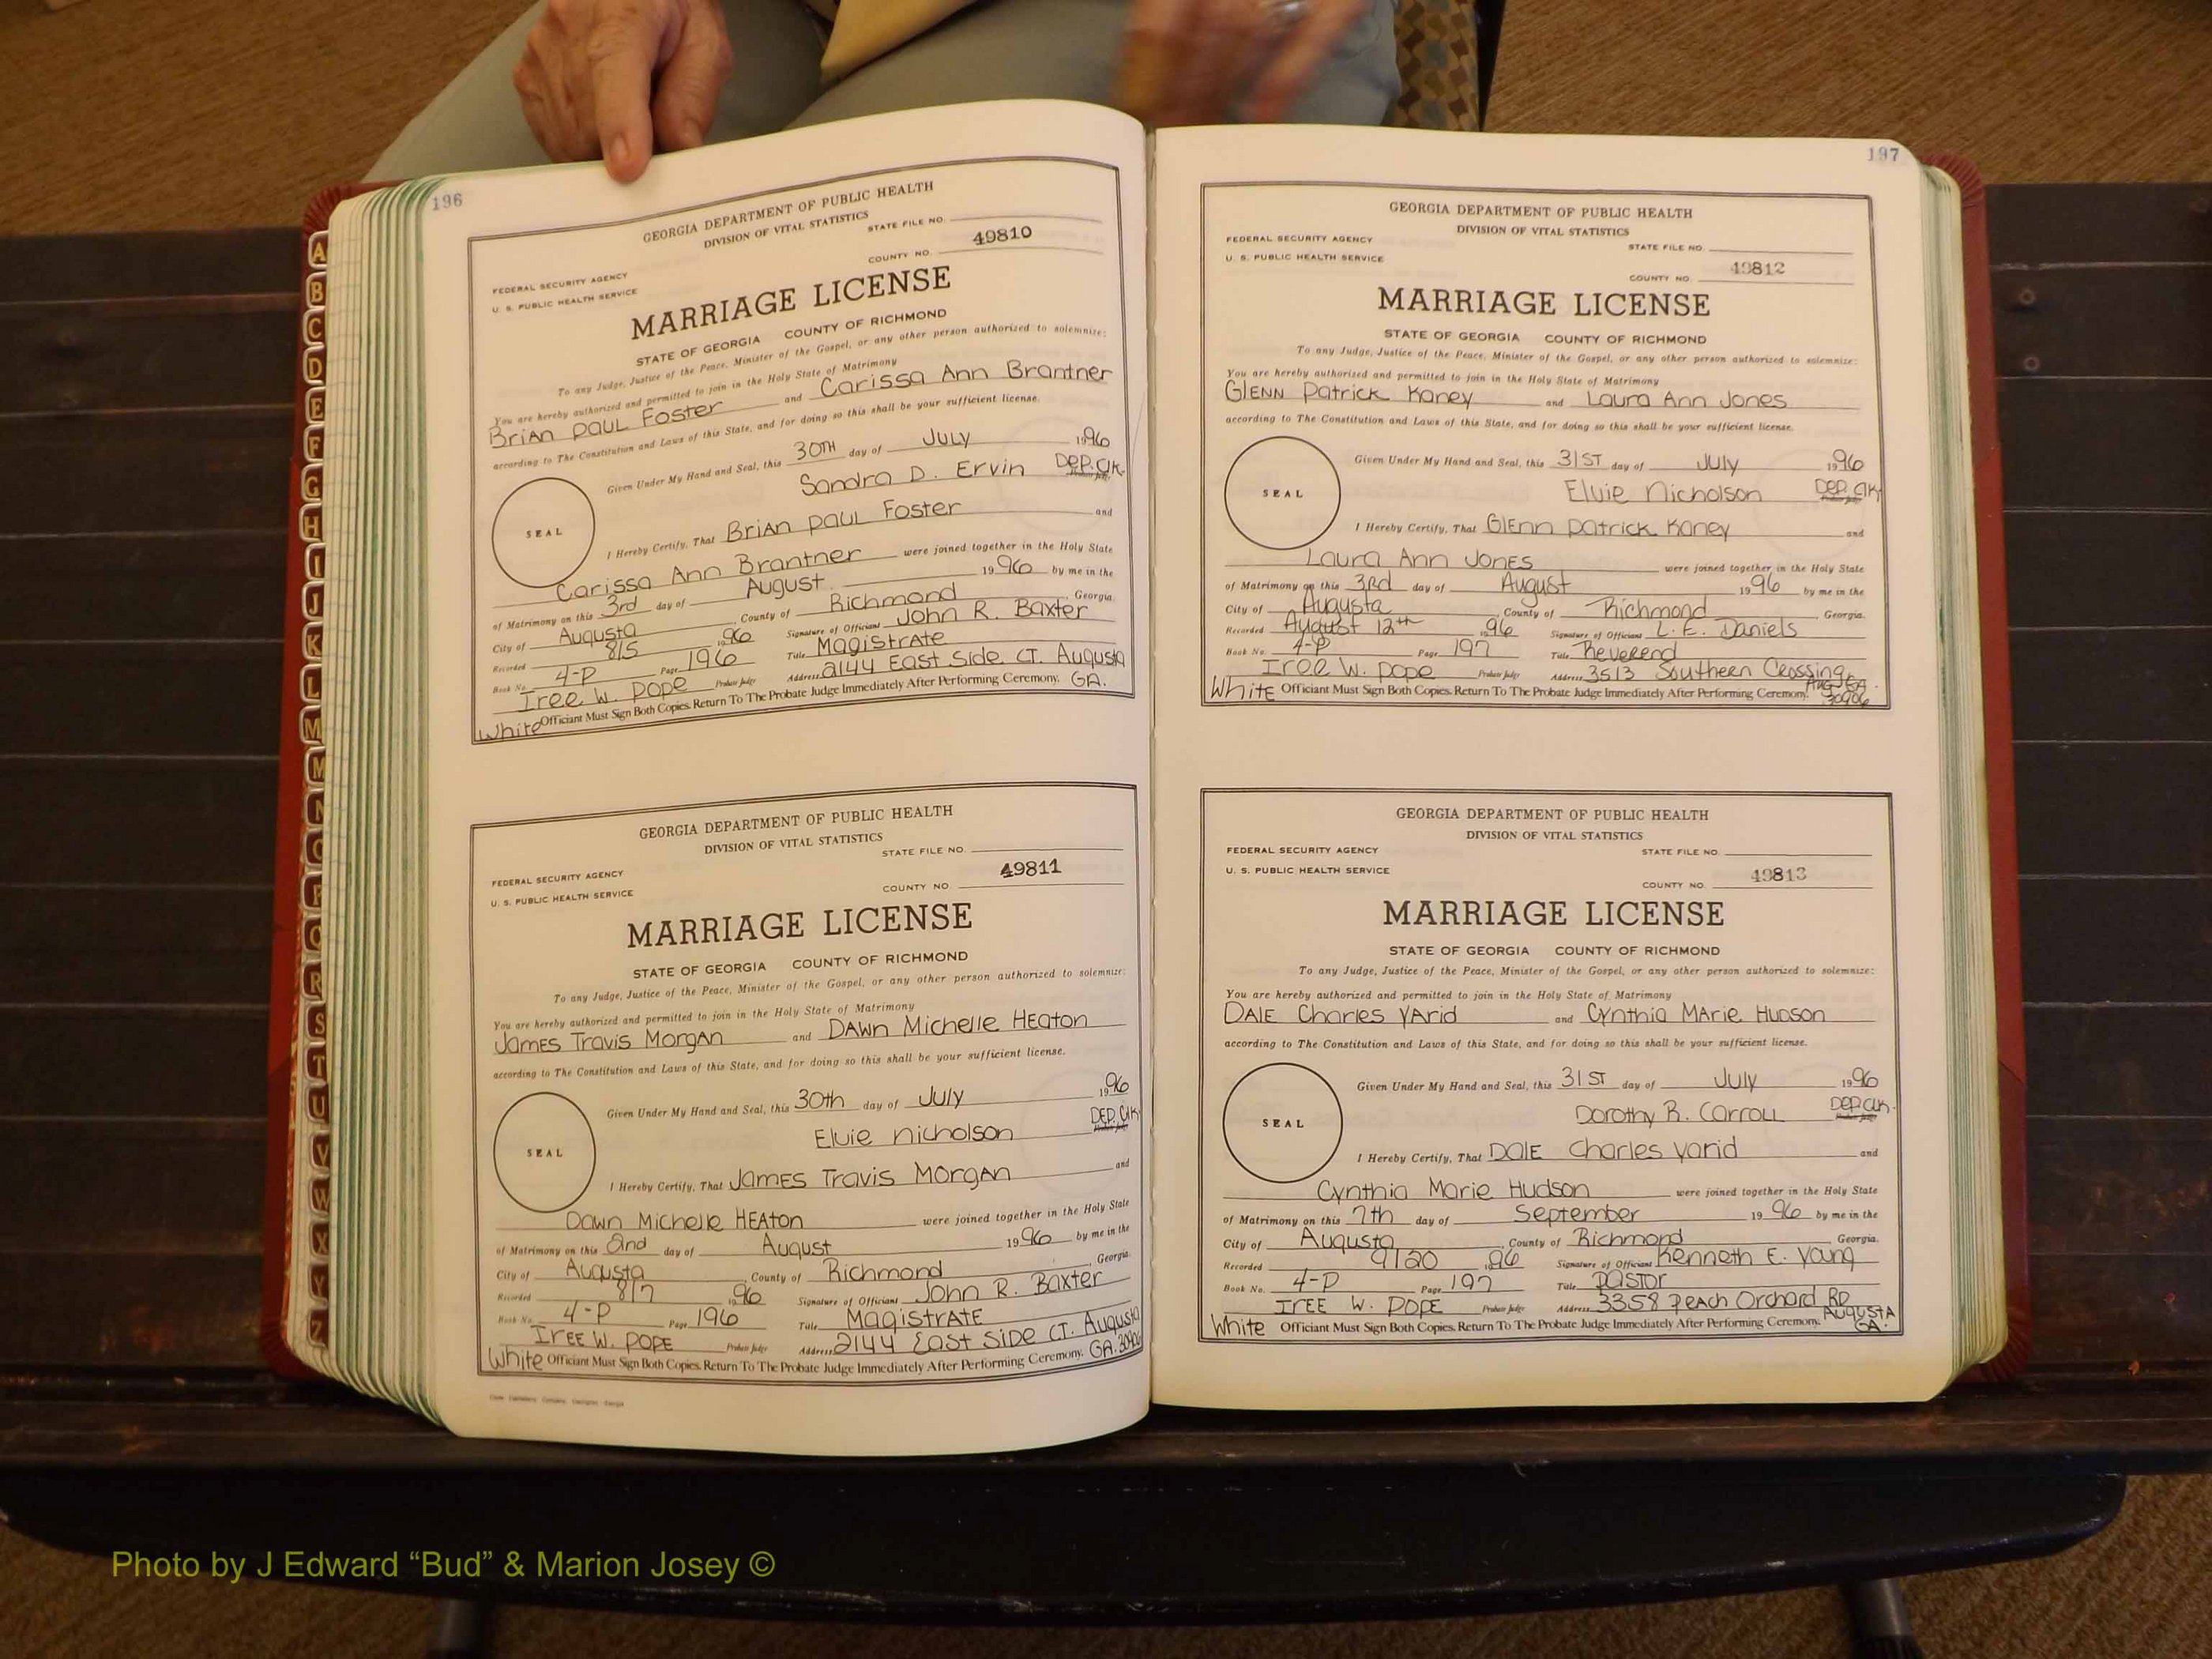 196
GEORGIA DEPARTMENT OF PUBLIC HEALTH
DIVISION OF VITAL STATISTICS
STATE FILE NO.
FEDERAL SECURITY AGENCY
U. S. PUBLIC HEALTH SERVICE
COUNTY NO. 49810
MARRIAGE LICENSE
STATE OF GEORGIA COUNTY OF RICHMOND
To any Judge, Justice of the Peace, Minister of the Gospel, or any other person authorized to solemnize:
You are hereby authorized and permitted to join in the Holy State of Matrimony
Brian Paul Foster and Carissa Ann Brantner
according to The Constitution and Laws of this State, and for doing so this shall be your sufficient license.
Given Under My Hand and Seal, this 30TH day of July 1996
Sandra D. Ervin Dep. Clk.
SEAL
I Hereby Certify, That Brian Paul Foster and
Carissa Ann Brantner were joined together in the Holy State
of Matrimony on this 3rd day of August 1996 by me in the
City of Augusta, County of Richmond, Georgia.
Recorded 8/5 1996 Signature of Officiant John R. Baxter
Book No. 4-P Page 196 Title Magistrate
Iree W. Pope Probate Judge Address 2144 East Side CT. Augusta
White Officiant Must Sign Both Copies. Return To The Probate Judge Immediately After Performing Ceremony. GA.
GEORGIA DEPARTMENT OF PUBLIC HEALTH
DIVISION OF VITAL STATISTICS
STATE FILE NO.
FEDERAL SECURITY AGENCY
U. S. PUBLIC HEALTH SERVICE
COUNTY NO. 49811
MARRIAGE LICENSE
STATE OF GEORGIA COUNTY OF RICHMOND
To any Judge, Justice of the Peace, Minister of the Gospel, or any other person authorized to solemnize:
You are hereby authorized and permitted to join in the Holy State of Matrimony
James Travis Morgan and Dawn Michelle Heaton
according to The Constitution and Laws of this State, and for doing so this shall be your sufficient license.
Given Under My Hand and Seal, this 30th day of July 1996
Elvie Nicholson Dep. Clk
SEAL
I Hereby Certify, That James Travis Morgan and
Dawn Michelle Heaton were joined together in the Holy State
of Matrimony on this 2nd day of August 1996 by me in the
City of Augusta, County of Richmond, Georgia.
Recorded 8/7 1996 Signature of Officiant John R. Baxter
Book No. 4-P Page 196 Title Magistrate
Iree W. Pope Probate Judge Address 2144 East Side CT. Augusta
White Officiant Must Sign Both Copies. Return To The Probate Judge Immediately After Performing Ceremony. GA. 30906
197
GEORGIA DEPARTMENT OF PUBLIC HEALTH
DIVISION OF VITAL STATISTICS
FEDERAL SECURITY AGENCY
STATE FILE NO.
U. S. PUBLIC HEALTH SERVICE
COUNTY NO. 49812
MARRIAGE LICENSE
STATE OF GEORGIA COUNTY OF RICHMOND
To any Judge, Justice of the Peace, Minister of the Gospel, or any other person authorized to solemnize:
You are hereby authorized and permitted to join in the Holy State of Matrimony
Glenn Patrick Kaney and Laura Ann Jones
according to The Constitution and Laws of this State, and for doing so this shall be your sufficient license.
Given Under My Hand and Seal, this 31ST day of July 1996
Elvie Nicholson Dep. Clk
SEAL
I Hereby Certify, That Glenn Patrick Kaney and
Laura Ann Jones were joined together in the Holy State
of Matrimony on this 3rd day of August 1996 by me in the
City of Augusta, County of Richmond, Georgia.
Recorded August 12th 1996 Signature of Officiant L. E. Daniels
Book No. 4-P Page 197 Title Reverend
Iree W. Pope Probate Judge Address 3513 Southern Crossing
White Officiant Must Sign Both Copies. Return To The Probate Judge Immediately After Performing Ceremony. Aug, GA. 30906
GEORGIA DEPARTMENT OF PUBLIC HEALTH
DIVISION OF VITAL STATISTICS
FEDERAL SECURITY AGENCY
STATE FILE NO.
U. S. PUBLIC HEALTH SERVICE
COUNTY NO. 49813
MARRIAGE LICENSE
STATE OF GEORGIA COUNTY OF RICHMOND
To any Judge, Justice of the Peace, Minister of the Gospel, or any other person authorized to solemnize:
You are hereby authorized and permitted to join in the Holy State of Matrimony
Dale Charles Yarid and Cynthia Marie Hudson
according to The Constitution and Laws of this State, and for doing so this shall be your sufficient license.
Given Under My Hand and Seal, this 31ST day of July 1996
Dorothy R. Carroll Dep. Clk.
SEAL
I Hereby Certify, That Dale Charles Yarid and
Cynthia Marie Hudson were joined together in the Holy State
of Matrimony on this 7th day of September 1996 by me in the
City of Augusta, County of Richmond Georgia.
Recorded 9/20 1996 Signature of Officiant Kenneth E. Young
Book No. 4-P Page 197 Title Pastor
Iree W. Pope Probate Judge Address 3358 Peach Orchard RD
White Officiant Must Sign Both Copies. Return To The Probate Judge Immediately After Performing Ceremony. Augusta GA.
A
B
C
D
E
F
G
H
I
J
K
L
M
M
N
O
P
Q
R
S
T
U
V
W
X
Y
Z
Photo by J Edward “Bud” & Marion Josey ©